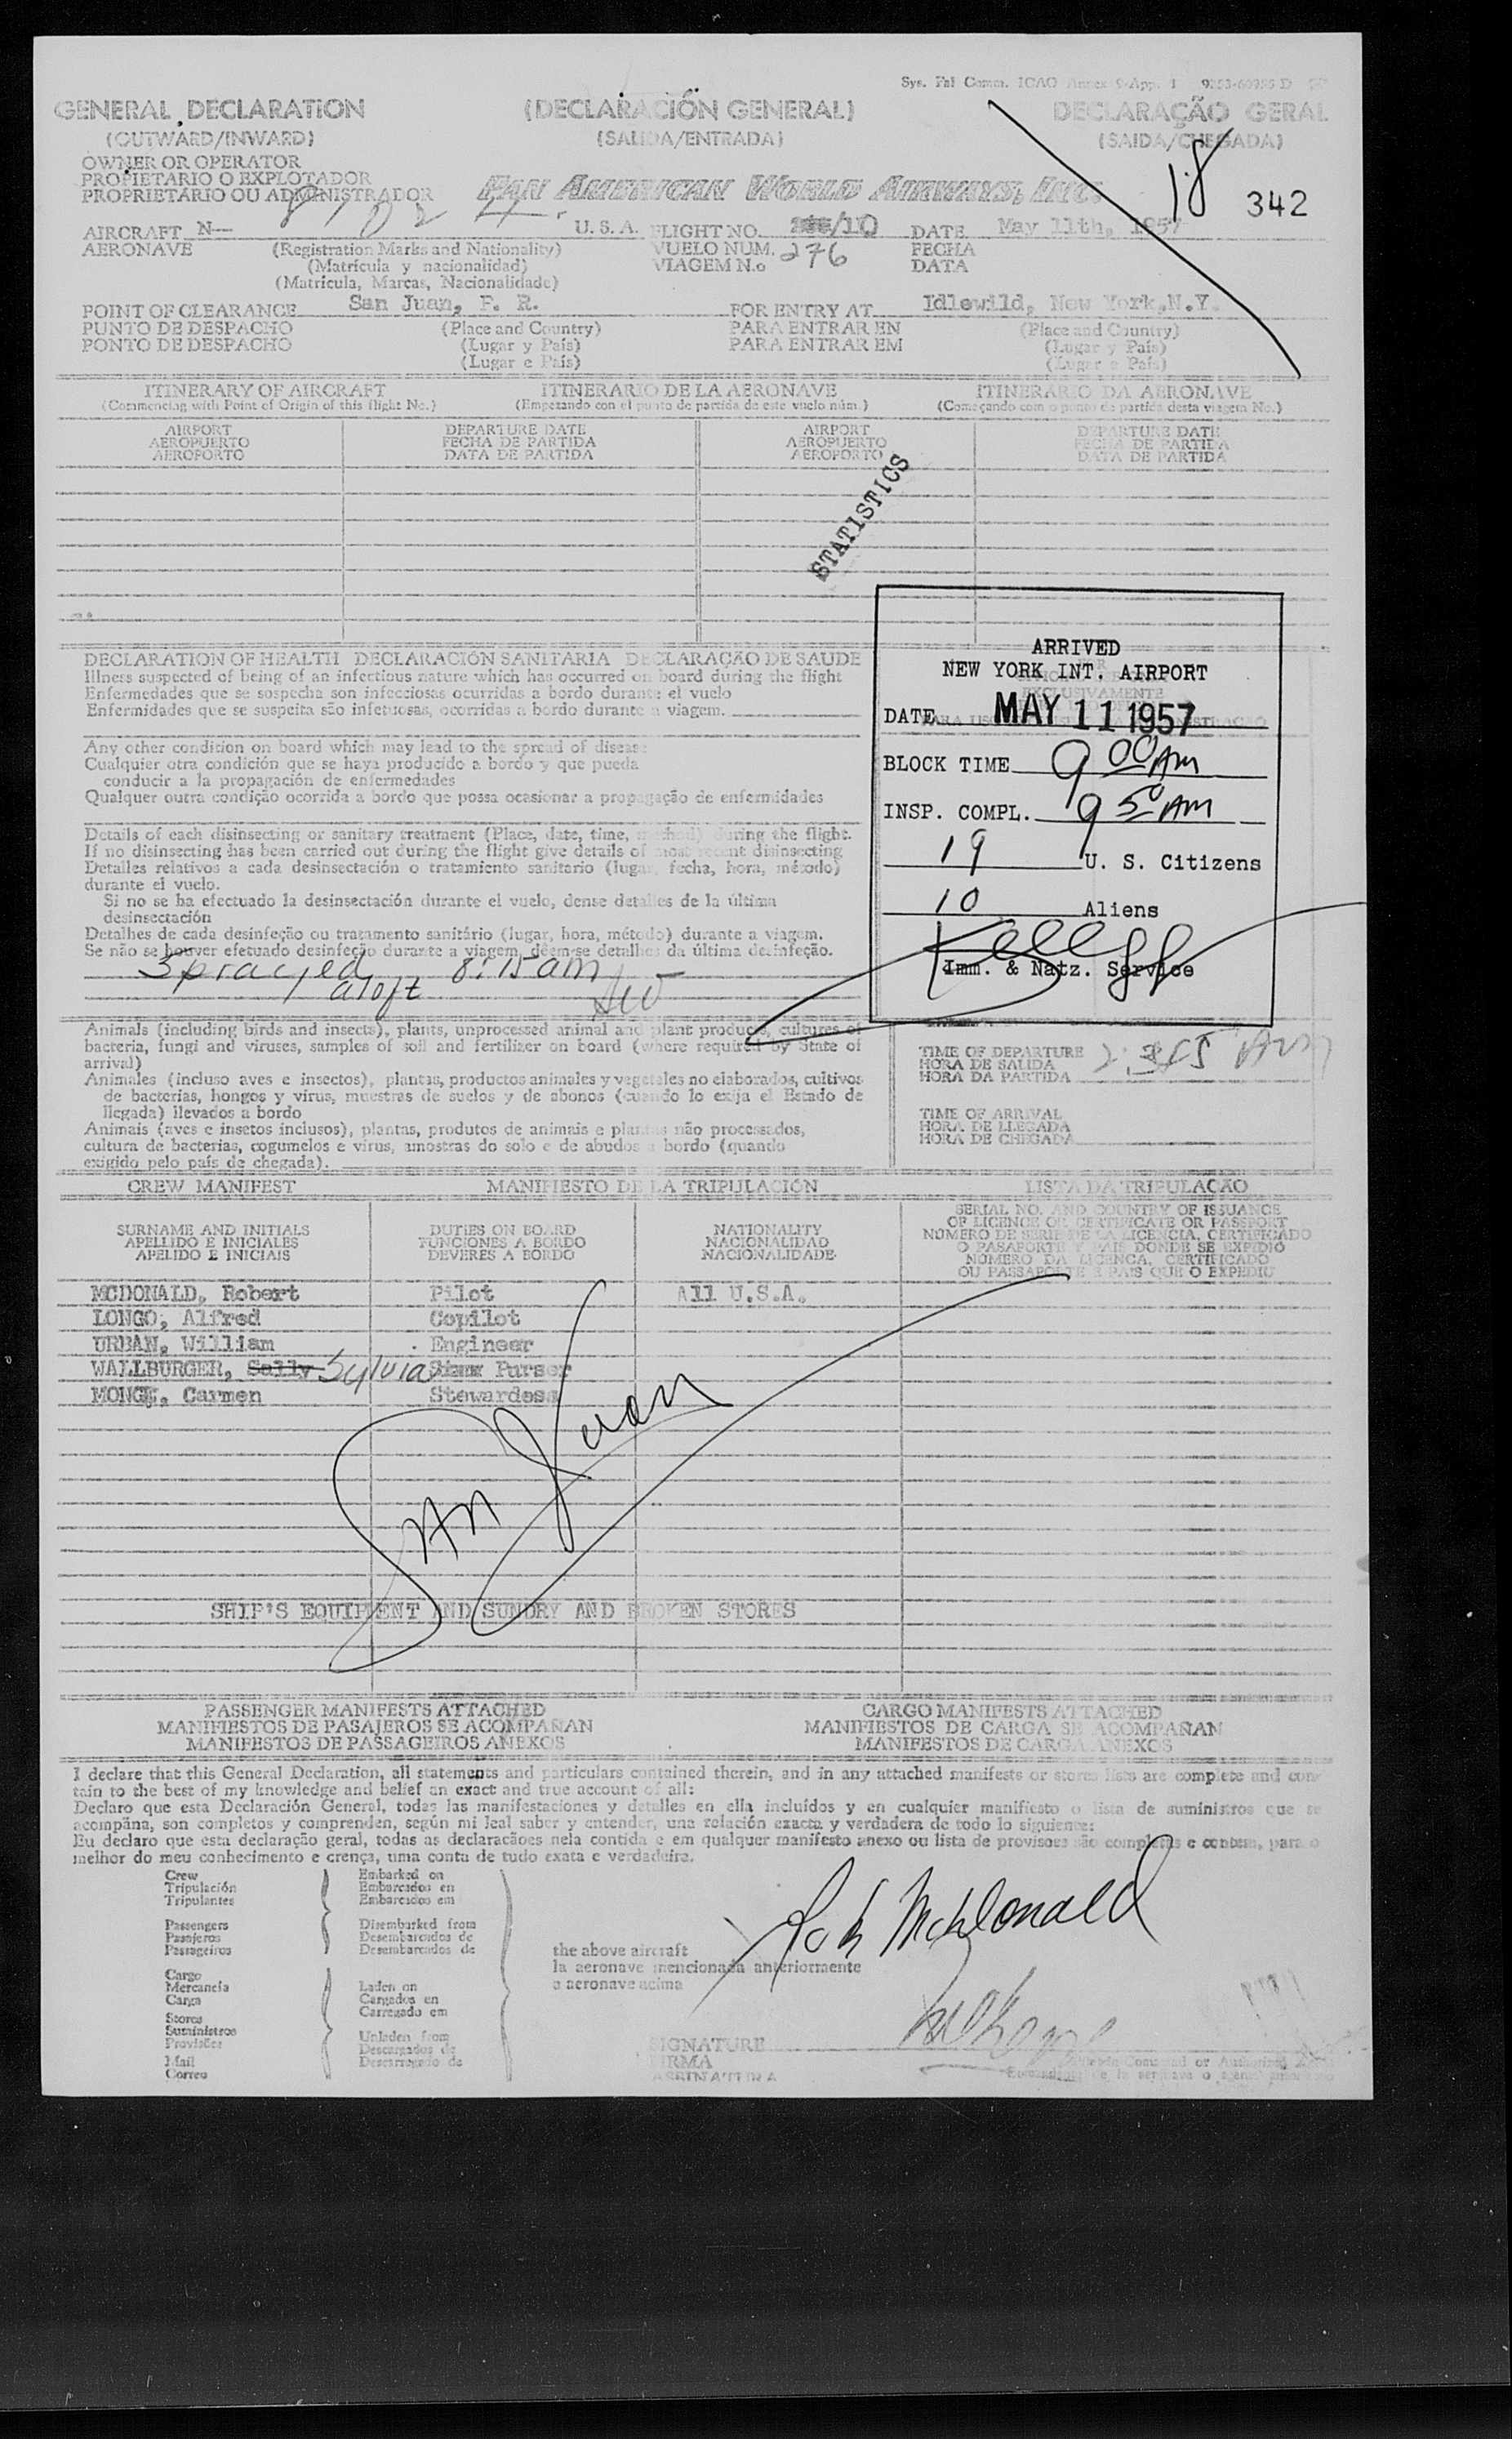 Sys. Fal Comm. ICAO Annex 9-App. 1
GENERAL DECLARATION (DECLARACIÓN GENERAL) DECLARAÇÃO GERAL
(OUTWARD/INWARD) (SALIDA/ENTRADA) (SAIDA/CHEGADA)
OWNER OR OPERATOR
PROPIETARIO O EXPLOTADOR
PROPRIETÁRIO OU ADMINISTRADOR PAN AMERICAN WORLD AIRWAYS, INC.
18 342
AIRCRAFT N- U.S.A. FLIGHT NO. /10 DATE May 11th, 1957
AERONAVE (Registration Marks and Nationality) VUELO NUM. 276 FECHA
(Matrícula y nacionalidad) VIAGEM N.o DATA
(Matricula, Marcas, Nacionalidade)
POINT OF CLEARANCE San Juan, P. R. FOR ENTRY AT Idlewild, New York, N.Y.
PUNTO DE DESPACHO (Place and Country) PARA ENTRAR EN (Place and Country)
PONTO DE DESPACHO (Lugar y País) PARA ENTRAR EM (Lugar y País)
(Lugar e País) (Lugar e País)
ITINERARY OF AIRCRAFT ITINERARIO DE LA AERONAVE ITINERARIO DA AERONAVE
(Commencing with Point of Origin of this flight No.) (Empezando con el punto de partida de este vuelo núm.) (Começando com o ponto de partida desta viagem No.)
AIRPORT DEPARTURE DATE AIRPORT DEPARTURE DATE
AEROPUERTO FECHA DE PARTIDA AEROPUERTO FECHA DE PARTIDA
AEROPORTO DATA DE PARTIDA AEROPORTO DATA DE PARTIDA
STATISTICS
DECLARATION OF HEALTH DECLARACIÓN SANITARIA DECLARAÇÃO DE SAUDE
Illness suspected of being of an infectious nature which has occurred on board during the flight
Enfermedades que se sospecha son infecciosas ocurridas a bordo durante el vuelo
Enfermidades que se suspeita são infetuosas, ocorridas a bordo durante a viagem.
Any other condition on board which may lead to the spread of disease
Cualquier otra condición que se haya producido a bordo y que pueda
conducir a la propagación de enfermedades
Qualquer outra condição ocorrida a bordo que possa ocasionar a propagação de enfermidades
Details of each disinsecting or sanitary treatment (Place, date, time, method) during the flight.
If no disinsecting has been carried out during the flight give details of most recent disinsecting
Detalles relativos a cada desinsectación o tratamiento sanitario (lugar, fecha, hora, método)
durante el vuelo.
Si no se ha efectuado la desinsectación durante el vuelo, dense detalles de la última
desinsectación
Detalhes de cada desinfeção ou tratamento sanitário (lugar, hora, método) durante a viagem.
Se não se houver efetuado desinfeção durante a viagem, dêem-se detalhes da última desinfeção.
Sprayed 8:15 am
aloft
ARRIVED
NEW YORK INT. AIRPORT
EXCLUSIVAMENTE
DATE MAY 11 1957
BLOCK TIME 9 00 AM
INSP. COMPL. 9 50 AM
19 U. S. Citizens
10 Aliens
Kellogg
Imm. & Natz. Service
Animals (including birds and insects), plants, unprocessed animal and plant products, cultures of
bacteria, fungi and viruses, samples of soil and fertilizer on board (where required by State of
arrival)
Animales (incluso aves e insectos), plantas, productos animales y vegetales no elaborados, cultivos
de bacterias, hongos y virus, muestras de suelos y de abonos (cuando lo exija el Estado de
llegada) llevados a bordo
Animais (aves e insetos inclusos), plantas, produtos de animais e plantas não processados,
cultura de bacterias, cogumelos e virus, amostras do solo e de abudos a bordo (quando
exigido pelo país de chegada).
TIME OF DEPARTURE
HORA DE SALIDA
HORA DA PARTIDA
TIME OF ARRIVAL
HORA DE LLEGADA
HORA DE CHEGADA
CREW MANIFEST MANIFIESTO DE LA TRIPULACIÓN LISTA DA TRIPULAÇÃO
SURNAME AND INITIALS DUTIES ON BOARD NATIONALITY SERIAL NO. AND COUNTRY OF ISSUANCE
APELLIDO E INICIALES FUNCIONES A BORDO NACIONALIDAD OF LICENCE OR CERTIFICATE OR PASSPORT
APELIDO E INICIAIS DEVERES A BORDO NACIONALIDADE NUMERO DE SERIE DE LA LICENCIA, CERTIFICADO
O PASAPORTE Y PAIS DONDE SE EXPIDIÓ
NUMERO DA LICENCA, CERTIFICADO
OU PASSAPORTE E PAIS QUE O EXPEDIU
MCDONALD, Robert Pilot All U.S.A.
LONGO, Alfred Copilot
URBAN, William Engineer
WALLBURGER, Sally Sylvia Purser
MONGE, Carmen Stewardess
San Juan
SHIP'S EQUIPMENT AND SUNDRY AND BROKEN STORES
PASSENGER MANIFESTS ATTACHED CARGO MANIFESTS ATTACHED
MANIFIESTOS DE PASAJEROS SE ACOMPAÑAN MANIFIESTOS DE CARGA SE ACOMPAÑAN
MANIFESTOS DE PASSAGEIROS ANEXOS MANIFESTOS DE CARGA ANEXOS
I declare that this General Declaration, all statements and particulars contained therein, and in any attached manifests or stores lists are complete and con-
tain to the best of my knowledge and belief an exact and true account of all:
Declaro que esta Declaración General, todas las manifestaciones y detalles en ella incluídos y en cualquier manifiesto o lista de suministros que se
acompãna, son completos y comprenden, según mi leal saber y entender, una relación exacta y verdadera de todo lo siguiente:
Eu declaro que esta declaração geral, todas as declaracãoes nela contida e em qualquer manifesto anexo ou lista de provisoes são completas e contem, para o
melhor do meu conhecimento e crença, uma conta de tudo exata e verdadeira.
Crew Embarked on
Tripulación Embarcados en
Tripulantes Embarcados em
Passengers Disembarked from
Pasajeros Desembarcados de
Passageiros Desembarcados de
the above aircraft
la aeronave mencionada anteriormente
o aeronave acima
Cargo Laden on
Mercancía Cargados en
Carga Carregado em
Stores
Suministros
Provisões
Unladen from
Descargados de
Descarregado de
Mail
Correo
Rob McDonald
SIGNATURE
FIRMA
ASSINATURA